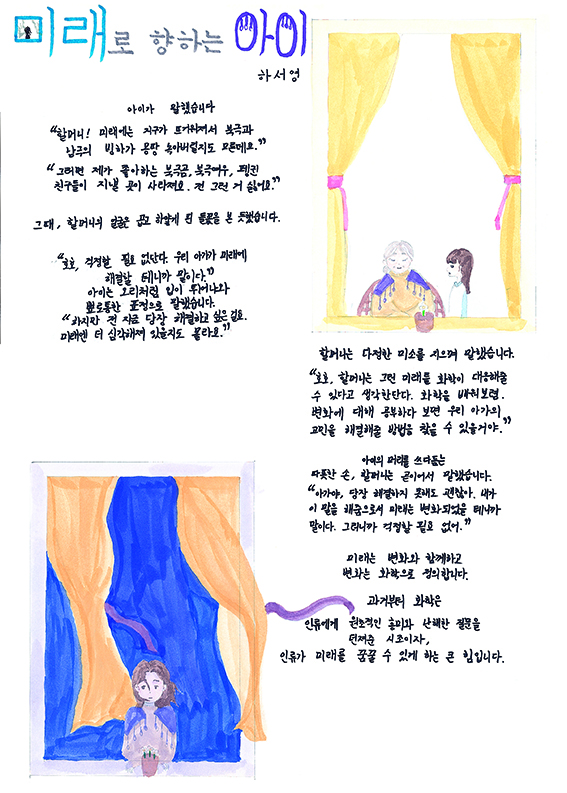 미래로 향하는 아이
하서영
아이가 말했습니다
“할머니! 미래에는 지구가 뜨거워져서 북극과
남극의 빙하가 몽땅 녹아버릴지도 모른데요.”
“그러면 제가 좋아하는 북극곰, 북극여우, 펭귄
친구들이 지낼 곳이 사라져요. 전 그런 거 싫어요.”
그때, 할머니의 얼굴은 곱고 하얗게 된 들꽃을 본 듯했습니다.
“호호, 걱정할 필요 없단다. 우리 아가가 미래에
해결할 테니까 말이다.”
아이는 오리처럼 입이 튀어나와
뾰로통한 표정으로 말했습니다.
“하지만 전 지금 당장 해결하고 싶은 걸요.
미래엔 더 심각해져 있을지도 몰라요.”
할머니는 다정한 미소를 지으며 말했습니다.
“호호, 할머니는 그런 미래를 화학이 대응해줄
수 있다고 생각한단다. 화학을 배워보렴.
변화에 대해 공부하다 보면 우리 아가의
고민을 해결해줄 방법을 찾을 수 있을거야.”
아이의 머리를 쓰다듬는
따뜻한 손, 할머니는 곧이어서 말했습니다.
“아가야, 당장 해결하지 못해도 괜찮아. 내가
이 말을 해줌으로서 미래는 변화되었을 테니까
말이다. 그러니까 걱정할 필요 없어.”
미래는 변화와 함께하고
변화는 화학으로 정의합니다.
과거부터 화학은
인류에게 원초적인 흥미와 난해한 질문을
던져준 시조이자,
인류가 미래를 꿈꿀 수 있게 하는 큰 힘입니다.